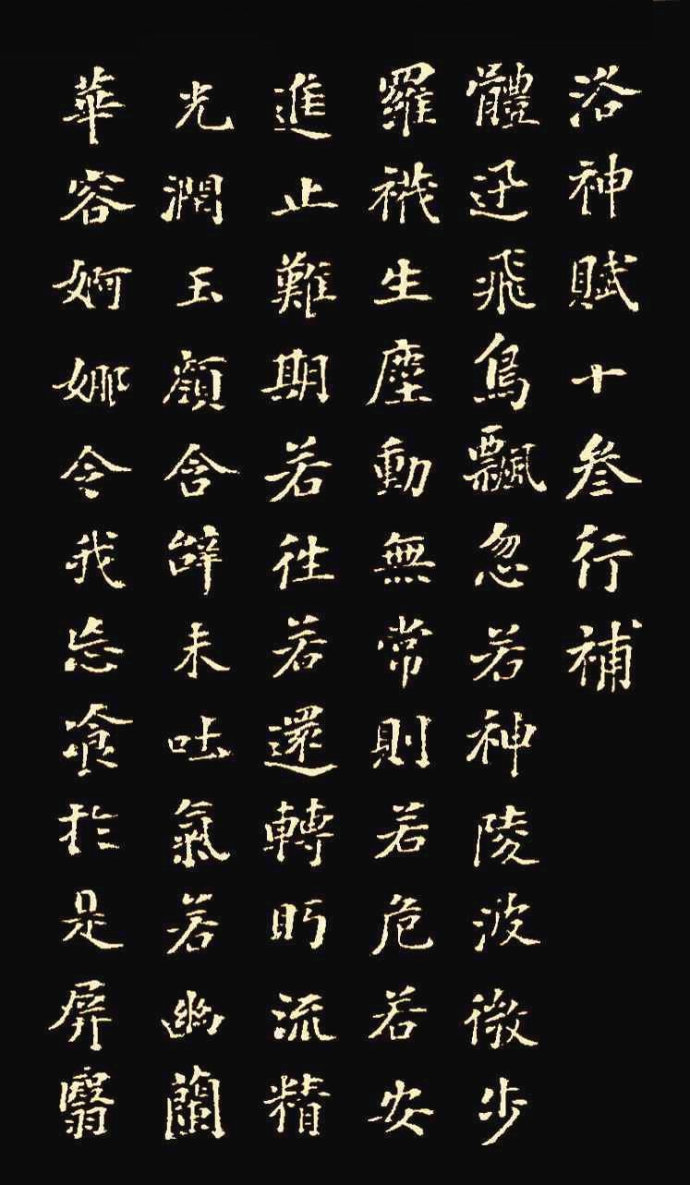 洛神賦十叄行補
體迅飛鳥飄忽若神陵波微步
羅襪生塵動無常則若危若安
進止難期若往若還轉眄流精
光潤玉顏含辭未吐氣若幽蘭
華容婀娜令我忘飡於是屏翳